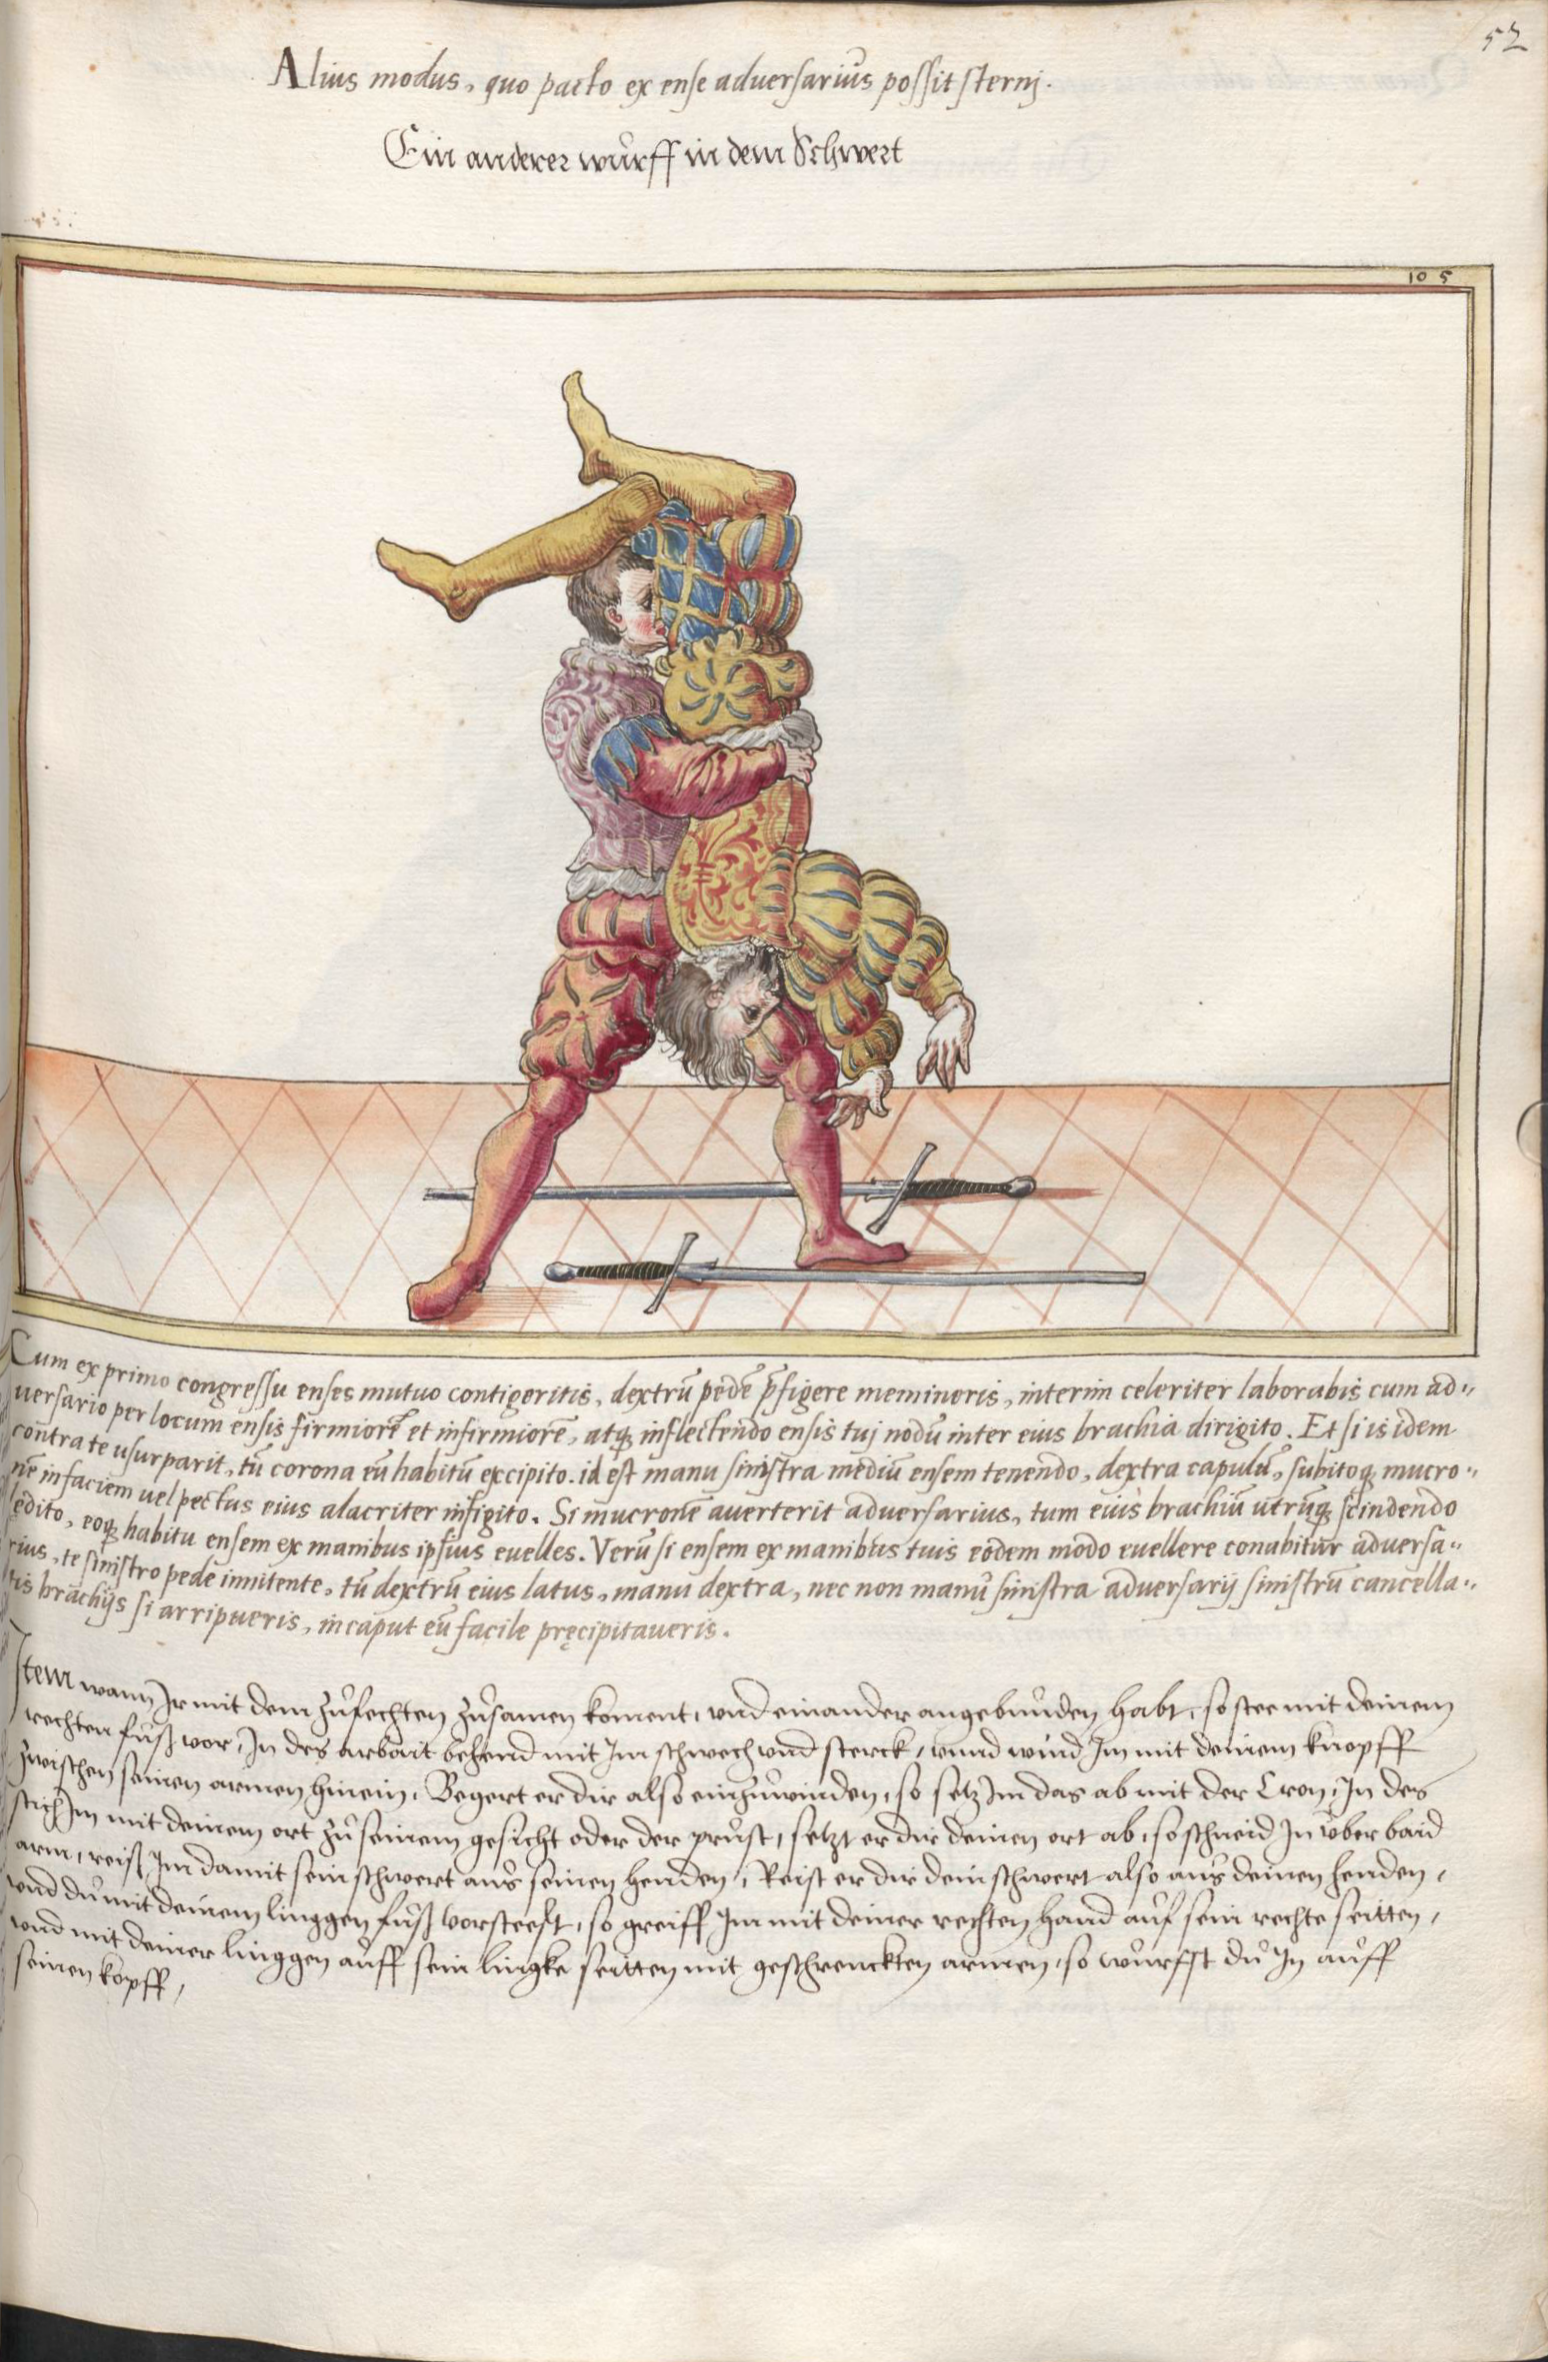 52
Alius modus, quo pacto ex ense adversarius possit sternj.
Ein anderer wůrff in dem Schwert
105
Cum ex primo congressu enses mutuo contigeritis, dextrū pedē p̄figere memineris, interim celeriter laborabis cum ad⸗
uersario per locum ensis firmiorē et infirmiorē, atq; inflectendo ensis tuj nodū inter eius brachia dirigito. Et si is idem
contra te usurparit, tū corona eū habitū excipito. id est manu sinistra mediū ensem tenendo, dextra capulū, subitoq; mucro⸗
nē in faciem uel pectus eius alacriter infigito. Si mucronē auerterit adversarius, tum eius brachiū utrūq; scindendo
lędito, eoq; habitu ensem ex manibus ipsius euelles. Verū si ensem ex manibus tuis eodem modo euellere conabitur adversa⸗
rius, te sinistro pede innitente, tū dextrū eius latus, manu dextra, nec non manu sinistra adversarij sinistrū cancella⸗
tis brachijs si arripueris, in caput eū facile pręcipitaueris.
Item wann Ir mit dem zůfechten zůsamen koment, und einander angebunden habt, so stee mit deinem
rechten fůß vor, In des arbait behend mit Im schwech und sterck, unnd wind Im mit deinem knopff
zwischen seinen armen hinein, Begert er dir also einzůwinden, so setz Im das ab mit der Cron, In des
stich Im mit deinem ort zů seinem gesicht oder der průst, setzt er dir deinen ort ab, so schneid In über baid
arm, reiß Im damit sein schwert aus seinen henden, Reist er dir dein schwert also aus deinen henden,
und dů mit deinem linggen fůß vorsteest, so greiff Im mit deiner rechten hand auf sein rechte seitten,
und mit deiner linggen aůff sein lingke seitten mit geschrenckten armen, so wůrfst dů In aůff
seinen kopff,